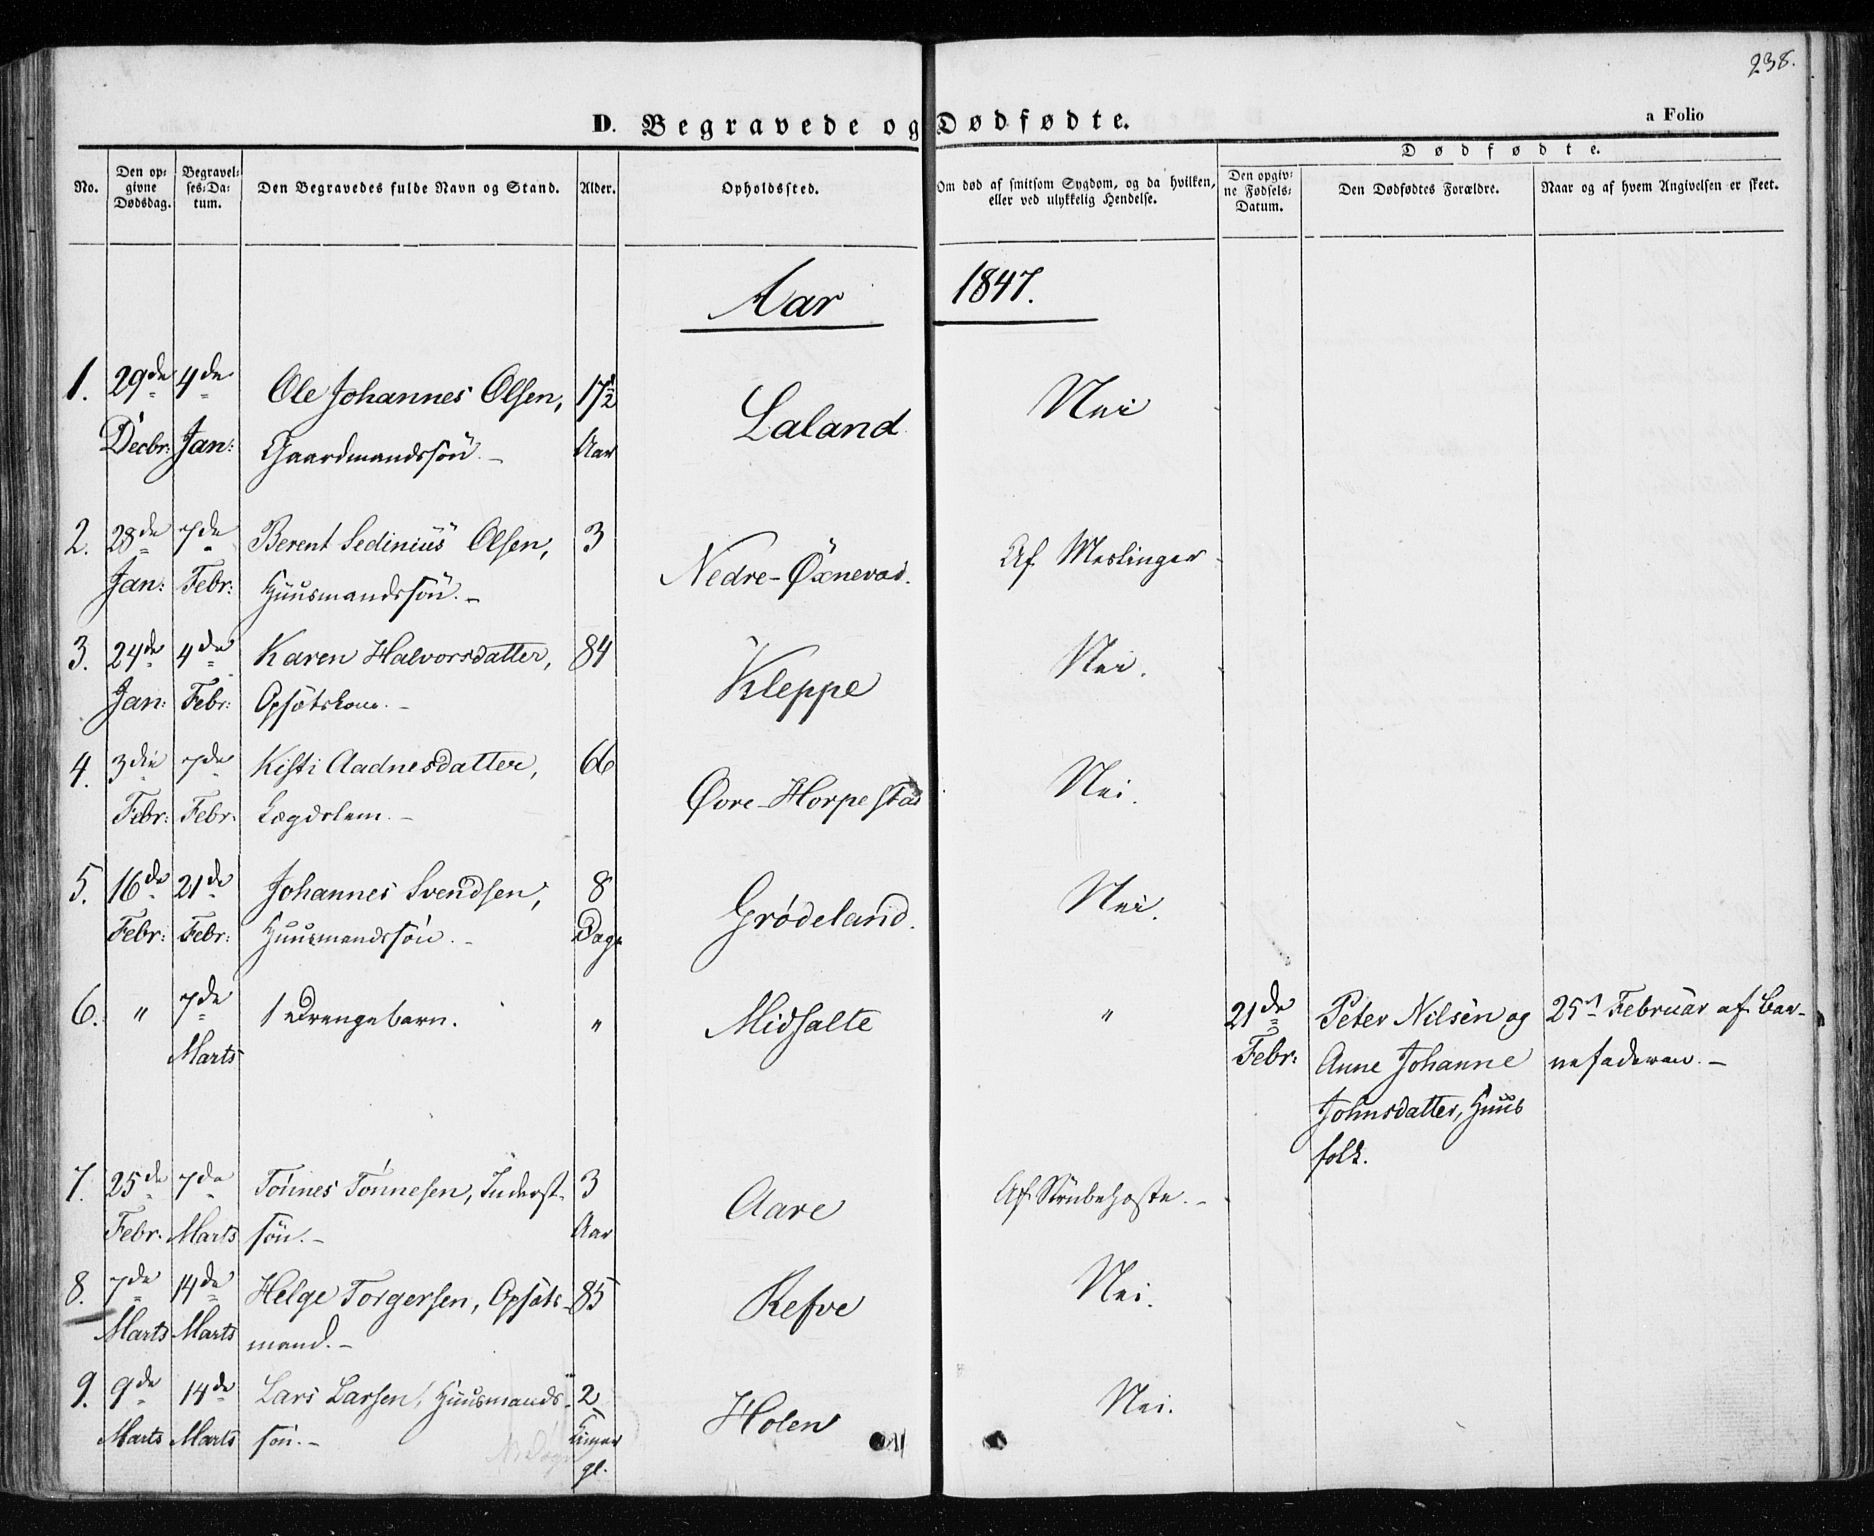 238.
D. Begravede og Dødfødte.
a Folio
No.
Den op-
givne
Dødsdag.
Begravel-
ses-Da-
tum.
Den Begravedes fulde Navn og Stand.
Alder.
Opholdssted.
Om død af smitsom Sygdom, og da hvilken,
eller ved ulykkelig Hendelse.
Dødfødte.
Den opgiv-
ne Fødsels-
Datum.
Den Dødfødtes Forældre.
Naar og af hvem Angivelsen er skeet.
Aar 1847.
1. 29de 4de Ole Johannes Olsen, 17½ Laland Nei
Decbr: Jan: Gaardmandssön. Aar
2. 28de 7de Berent Sedinius Olsen, 3 Nedre-Øxnevad. Af Meslinger
Jan: Febr: Huusmandssön.
3. 24de 4de Karen Halvorsdatter, 84 Kleppe Nei.
Jan: Febr: Opsötskone.
4. 3die 7de Kisti Aadnesdatter, 66 Øvre-Horpestad Nei.
Febr: Febr: Lægdslem.
5. 16de 21de Johannes Svendsen, 8 Grødeland. Nei.
Febr: Febr: Huusmandssön. Dage
6. " 7de 1 Drengebarn. " Midsalte " 21de Peter Nilsen og 25n Februar af Bar-
Marts Febr: Anne Johanne nefaderen.
Johnsdatter, Huus
folk.
7. 25de 7de Tönnes Tönnesen, Inderst- 3 Aare Af Strubehoste.
Febr. Marts sön. Aar
8. 7de 14de Helge Torgersen, Opsöts- 85 Refve Nei.
Marts Marts mand.
9. 9de 14de Lars Larsen, Huusmands- 2 Holen Nei.
Marts Marts sön. Timer
gl.